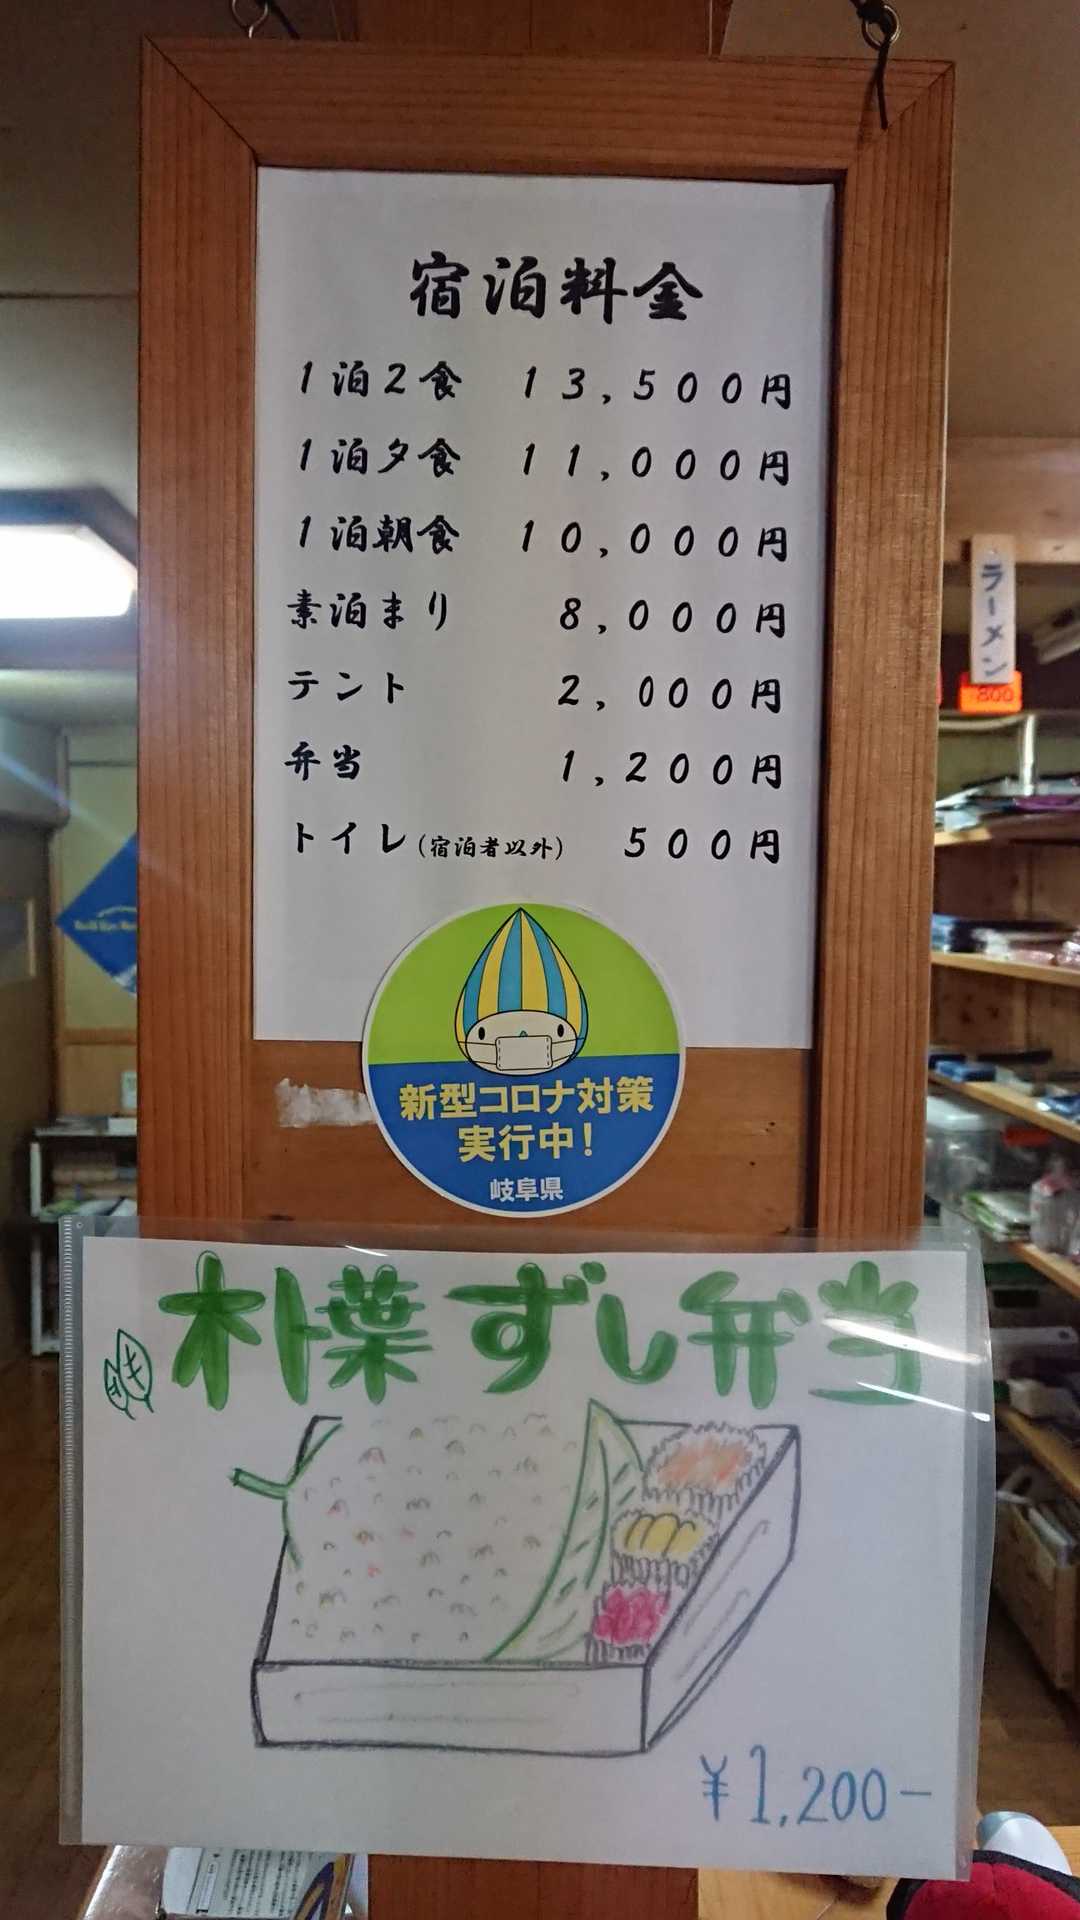 宿泊料金
1泊2食 13,500円
1泊夕食 11,000円
1泊朝食 10,000円
素泊まり 8,000円
テント 2,000円
弁当 1,200円
トイレ(宿泊者以外) 500円
ラーメン
800
新型コロナ対策
実行中!
岐阜県
朴葉ずし弁当
¥1,200-